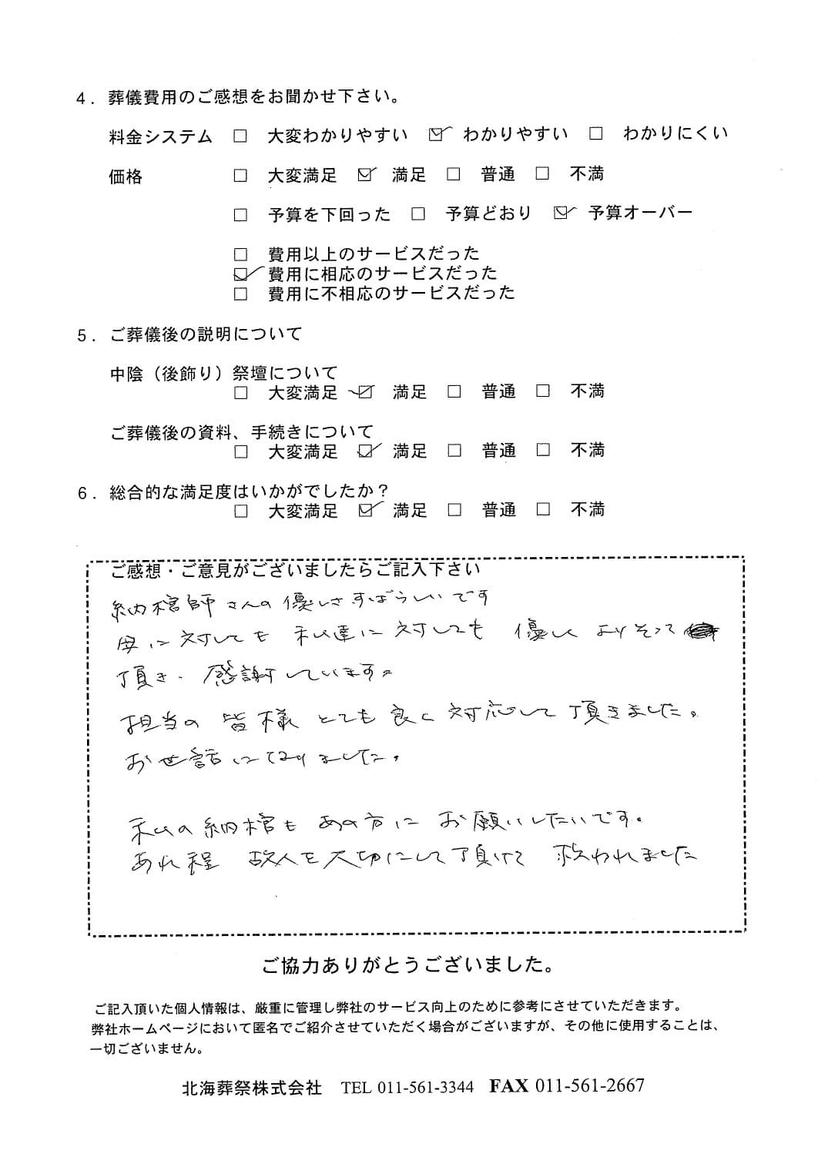 4．葬儀費用のご感想をお聞かせ下さい。
料金システム □ 大変わかりやすい ☑ わかりやすい □ わかりにくい
価格 □ 大変満足 ☑ 満足 □ 普通 □ 不満
□ 予算を下回った □ 予算どおり ☑ 予算オーバー
□ 費用以上のサービスだった
☑ 費用に相応のサービスだった
□ 費用に不相応のサービスだった
5．ご葬儀後の説明について
中陰（後飾り）祭壇について
□ 大変満足 ☑ 満足 □ 普通 □ 不満
ご葬儀後の資料、手続きについて
□ 大変満足 ☑ 満足 □ 普通 □ 不満
6．総合的な満足度はいかがでしたか？
□ 大変満足 ☑ 満足 □ 普通 □ 不満
ご感想・ご意見がございましたらご記入下さい
納棺師さんの優しさすばらしいです
母に対しても 私達に対しても 優しく よりそって
頂き、感謝しています。
担当の 皆様 とても 良く 対応して 頂きました。
お世話になりました。
私の納棺も あの方に お願いしたいです。
あれ程 故人を大切にして頂けて 救われました
ご協力ありがとうございました。
ご記入頂いた個人情報は、厳重に管理し弊社のサービス向上のために参考にさせていただきます。
弊社ホームページにおいて匿名でご紹介させていただく場合がございますが、その他に使用することは、
一切ございません。
北海葬祭株式会社 TEL 011-561-3344 FAX 011-561-2667